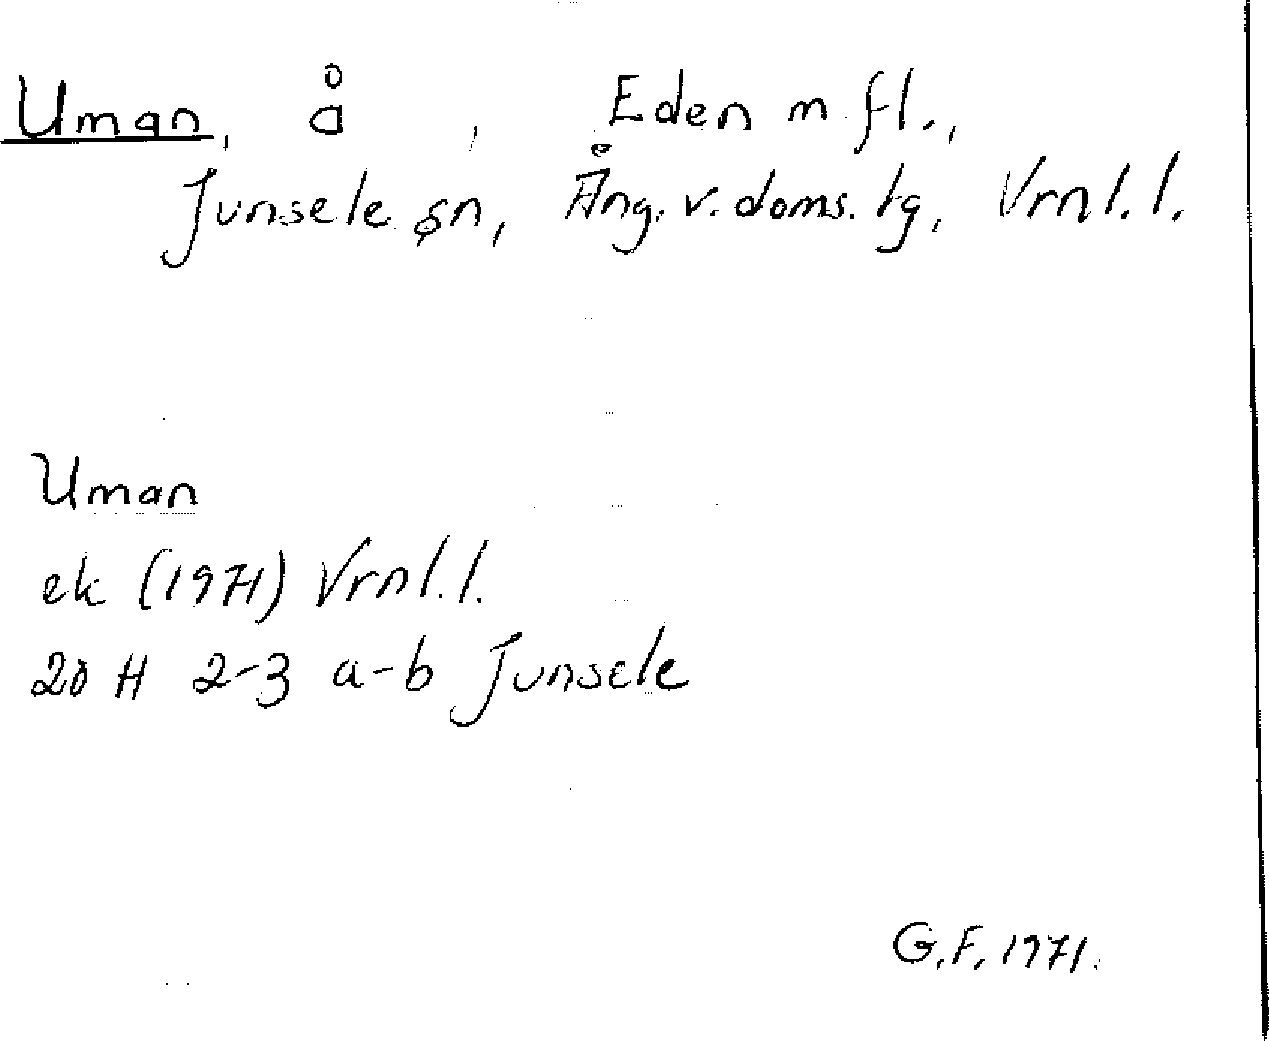 Uman, å, Eden m fl.,
Junsele sn, Ång. v. doms. tg, Vrnl. l.
Uman
ek (1971) Vrnl. l.
20 H 2-3 a-b Junsele
G. F. 1971.